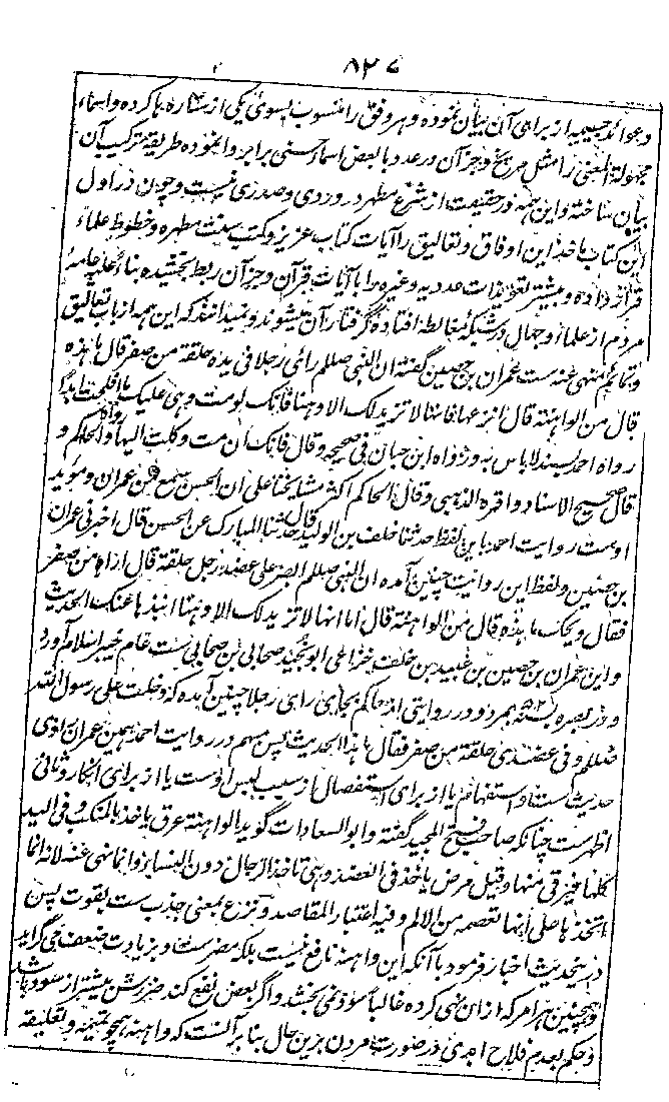 ۸۲۷
وعوائد جسیمه از برای آن بیان نموده و هر وفق را منسوب بسوی یکی از ستاره ها کرده و اسماء
مجهولة المعنی را مثل مریخ و جز آن در عدد با بعض اسماء حسنی برابر وا نموده طریقه ترکیب آن
بیان ساخته و این همه در حقیقت از شرع مطهر در وردی و صدری نیست و چون در اول
این کتاب ماخذ این اوفاق و تعالیق را آیات کتاب عزیز و کتب سنت مطهره و خطوط علماء
قرار داده و بیشتر تعویذات عددیه و غیره را با آیات قرآن و جز آن ربط بخشیده بناءً علیه عامهٔ
مردم از علماء و جهال در شبکهٔ مغالطه افتاده گرفتار آن میشوند و نمیدانند که این همه از باب تعالیق
و تمائم منهی عنه ست عمران بن حصین گفته ان النبی صللم رای رجلا فی یده حلقة من صفر قال ما هذه
قال من الواهنة قال انزعها فانها لا تزیدک الا وهنا فانک لو مت وهی علیک ما افلحت ابدا
رواه احمد بسند لاباس به و رواه ابن حبان فی صحیحه و قال فانک ان مت وکلت الیها و الحاکم و
قال صحیح الاسناد و اقره الذهبی و قال الحاکم اکثر مشایخنا علی ان الحسن سمع من عمران و موید
اوست روایت احمد باین لفظ حدثنا خلف بن الولید حدثنا المبارک عن الحسن قال اخبرنی عمران
بن حصین و لفظ این روایت چنین آمده ان النبی صللم ابصر علی عضد رجل حلقة قال اراه من صفر
فقال ویحک ما هذه قال من الواهنة قال اما انها لا تزیدک الا وهنا انبذها عنک الحدیث
و این عمران بن حصین بن عبید بن خلف خزاعی ابو نجید صحابی بن صحابی ست عام خیبر اسلام آورد
و در بصره ۵۲ بمرد و در روایتی از حاکم بجای رای رجلا چنین آمده که دخلت علی رسول الله
صللم و فی عضدی حلقة من صفر فقال ما هذا الحدیث پس مبهم در روایت احمد همین عمران راوی
حدیث ست و استفهام یا از برای استفصال از سبب لبس اوست یا از برای انکار و ثانی
اظهر ست چنانکه صاحب فتح المجید گفته و ابو السعادات گوید الواهنة عرق یاخذ بالمنکب و فی الید
کلها فیرقی منها و قیل مرض یاخذ فی العضد و هی تاخذ الرجال دون النساء و انما نهی عنه لانه انما
اتخذها علی انها تعصمه من الالم و فیه اعتبار المقاصد و نزع بمعنی جذب ست بقوت پس
درین حدیث اخبار فرمود با آنکه این واهنه نافع نیست بلکه مضر ست و بزیادت ضعف می گراید
و همچنین هر امر که از ان نهی کرده غالباً سود نمی بخشد و اگر بعض نفع کند ضررش بیشتر از سود باشد
و حکم بعدم فلاح ابدی در صورت مردن برین حال بنا بر آنست که واهنه همچو تمیمه و تعلیقه